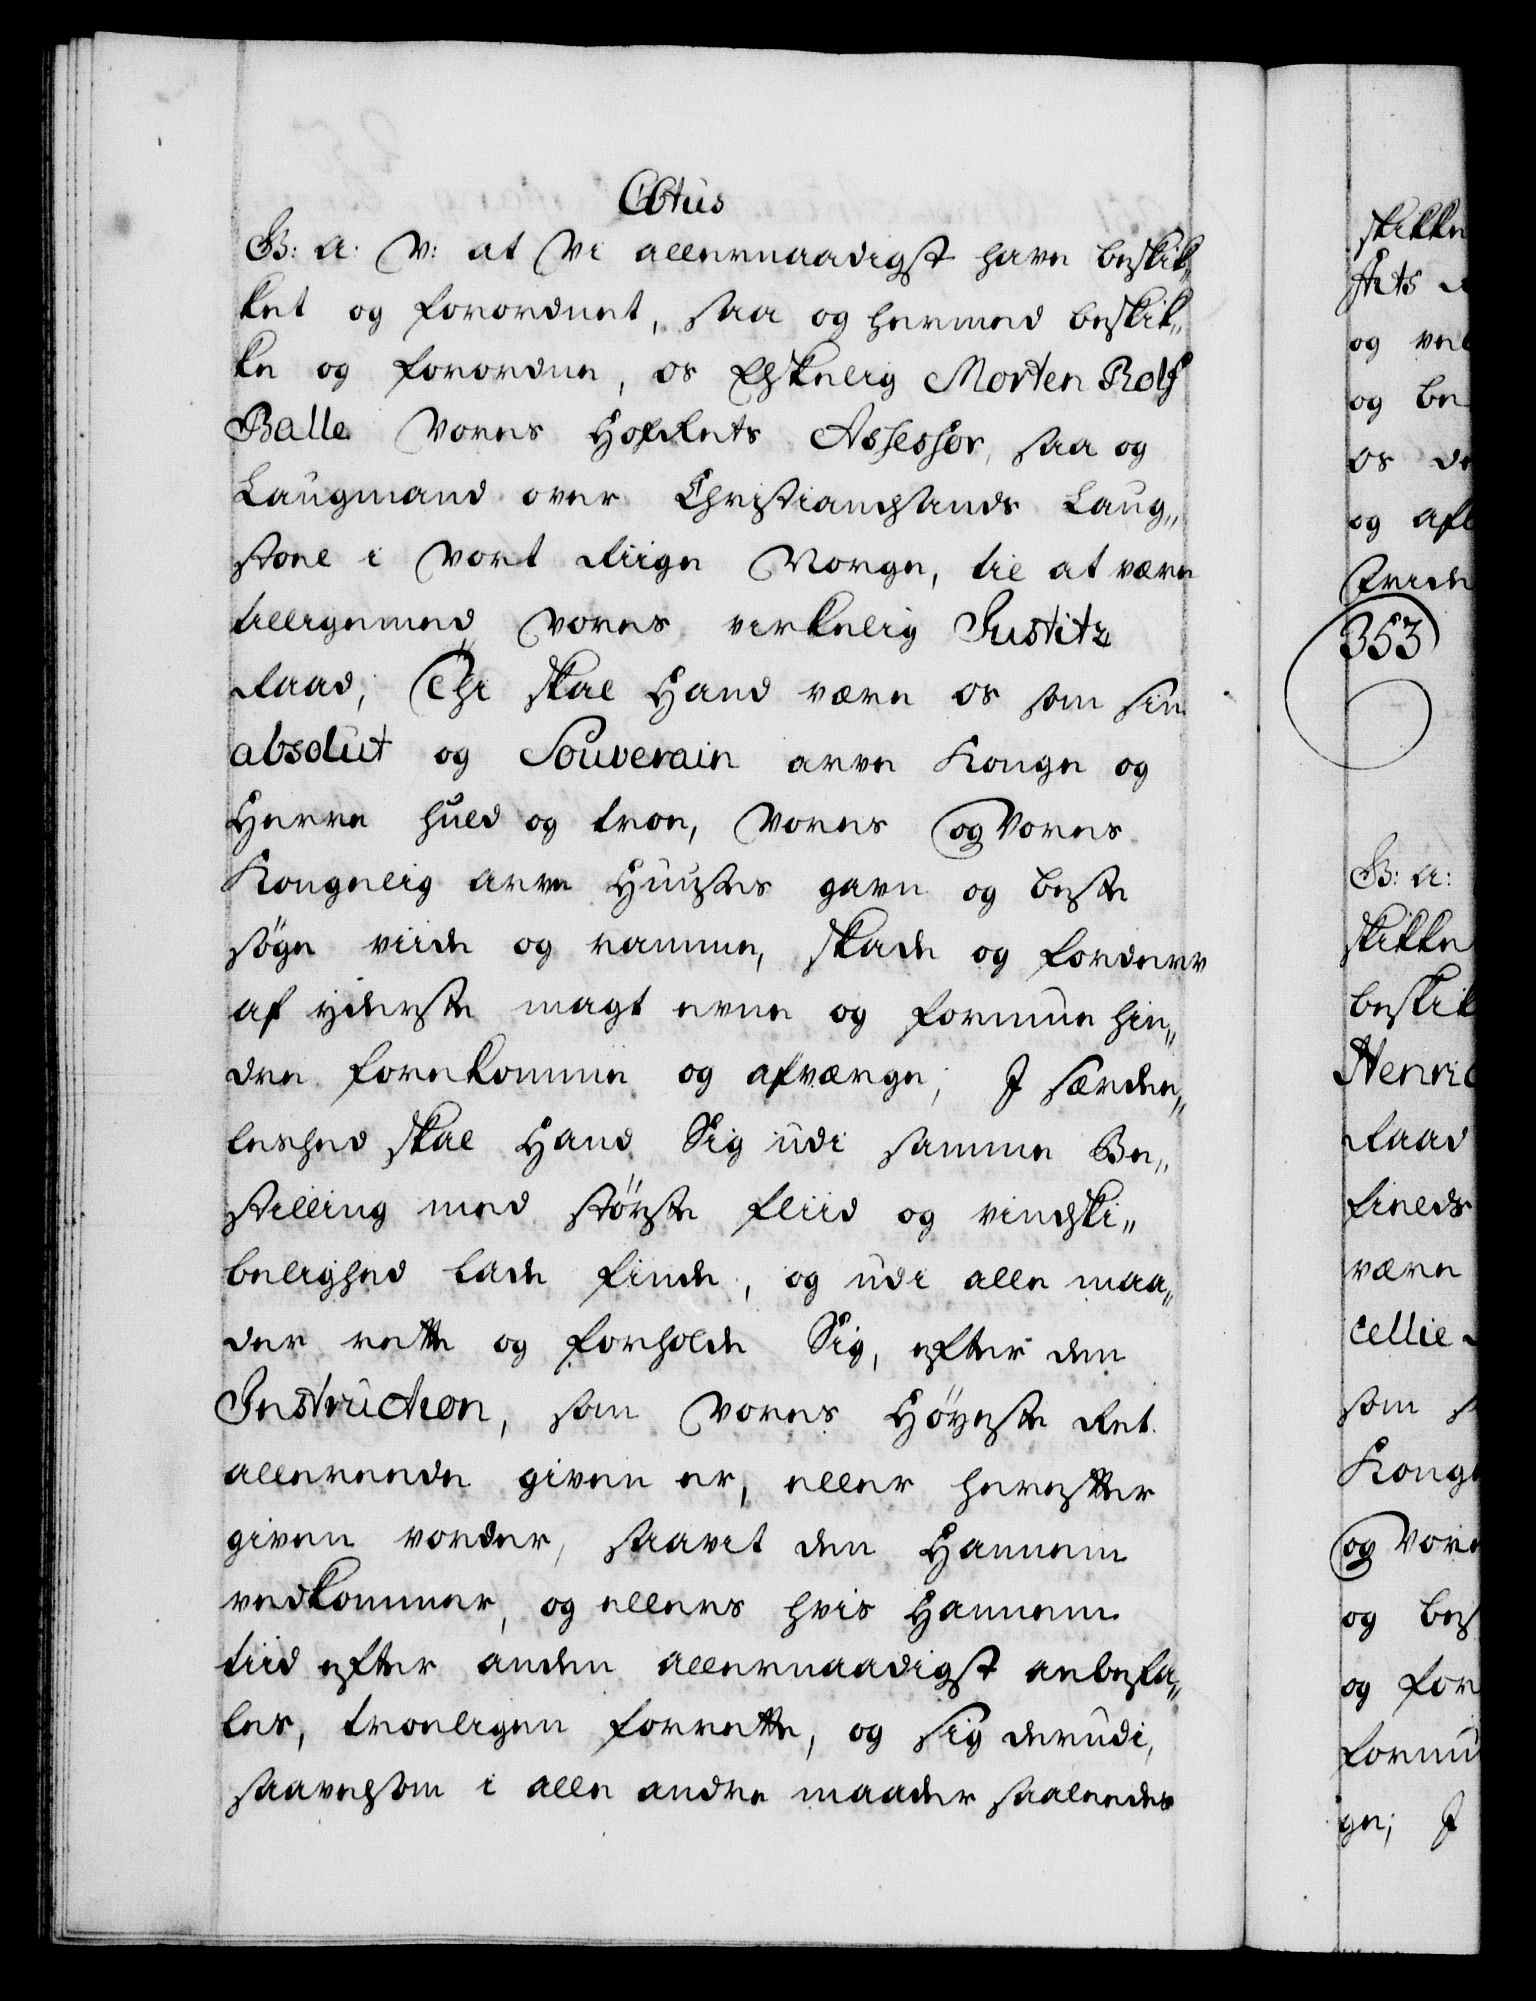 C6tus
G: A: V: at Vi allernaadigst have beskik„
ket og forordnet, saa og hermed beskik„
ke og forordne, os Elskelig Morten Rolf
Balle Vores HofRets Assessor, saa og
Laugmand over Christiansands Laug„
stoel i Vort Riige Norge, til at være
tilligemed Vores virkelig Justitz
Raad; Thi skal Hand være os som sin
absolut og Souverain arve Konge og
Herre huld og troe, Vores og Vores
Kongelig arve Huuses gavn og beste
søge viide og ramme, skade og forderv
af yderste magt evne og formue hin„
dre forekomme og afværge; I særde„
leshed skal Hand Sig udi samme Be„
stilling med störste fliid og vindski„
belighed lade finde, og udi alle maa„
der rette og forholde Sig, efter den
Instruction, som Vores Höyeste Ret
allereede given er, eller herefter
given vorder, saavit den Hannem
vedkommer, og ellers hvis Hannem
tiid efter anden allernaadigst anbefa„
les, troeligen forrette, og sig derudi,
saavelsom i alle andre maader saaledes
skikke
og
og be
os
og
353
G: A:
skikke
beskik
Henric
Raad
være
cellie
som
Konge
og Vore
og bes
og for
formu
ge; I